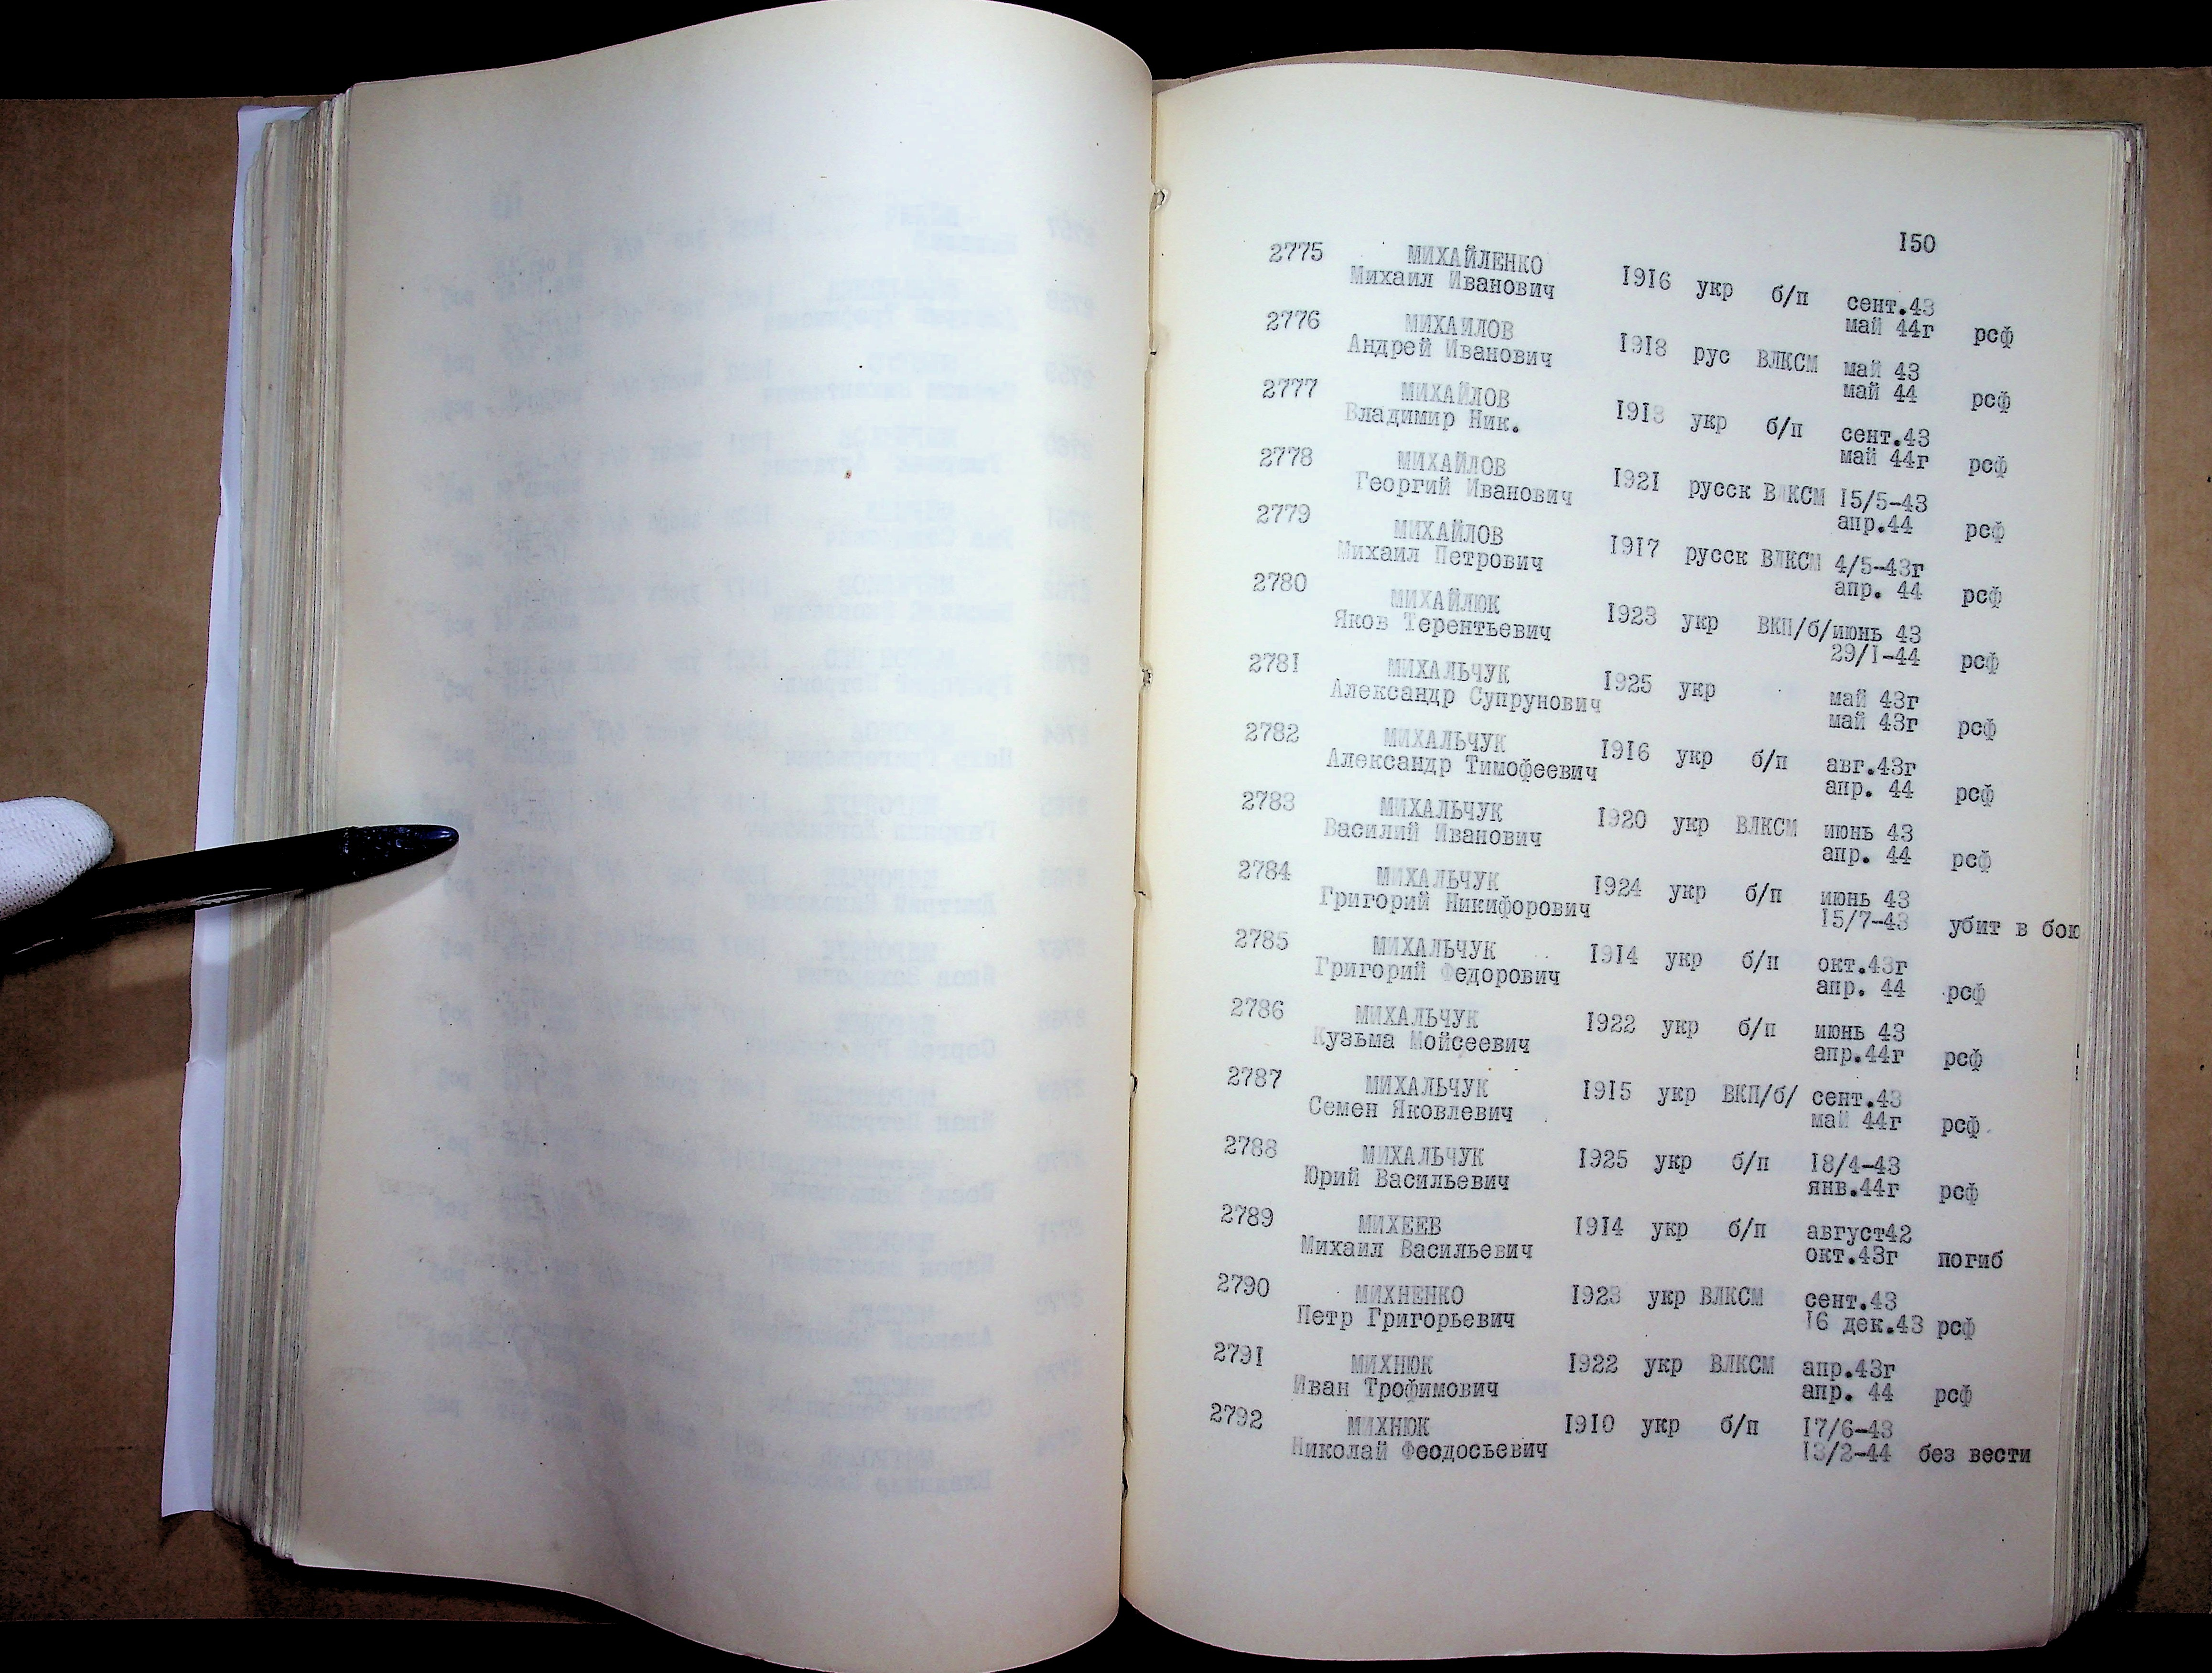 150
2775 МИХАЙЛЕНКО
Михаил Иванович 1916 укр б/п сент.43
май 44г рсф
2776 МИХАЙЛОВ
Андрей Иванович 1918 рус ВЛКСМ май 43
май 44 рсф
2777 МИХАЙЛОВ
Владимир Ник. 1918 укр б/п сент.43
май 44г рсф
2778 МИХАЙЛОВ
Георгий Иванович 1921 русск ВЛКСМ 15/5-43
апр.44 рсф
2779 МИХАЙЛОВ
Михаил Петрович 1917 русск ВЛКСМ 4/5-43г
апр. 44 рсф
2780 МИХАЙЛЮК
Яков Терентьевич 1923 укр ВКП/б/июнь 43
29/1-44 рсф
2781 МИХАЛЬЧУК
Александр Супрунович 1925 укр май 43г
май 43г рсф
2782 МИХАЛЬЧУК
Александр Тимофеевич 1916 укр б/п авг.43г
апр. 44 рсф
2783 МИХАЛЬЧУК
Василий Иванович 1920 укр ВЛКСМ июнь 43
апр. 44 рсф
2784 МИХАЛЬЧУК
Григорий Никифорович 1924 укр б/п июнь 43
15/7-43 убит в бою
2785 МИХАЛЬЧУК
Григорий Федорович 1914 укр б/п окт.43г
апр. 44 рсф
2786 МИХАЛЬЧУК
Кузьма Мойсеевич 1922 укр б/п июнь 43
апр.44г рсф
2787 МИХАЛЬЧУК
Семен Яковлевич 1915 укр ВКП/б/ сент.43
май 44г рсф
2788 МИХАЛЬЧУК
Юрий Васильевич 1925 укр б/п 18/4-43
янв.44г рсф
2789 МИХЕЕВ
Михаил Васильевич 1914 укр б/п август42
окт.43г погиб
2790 МИХНЕНКО
Петр Григорьевич 1923 укр ВЛКСМ сент.43
16 дек.43 рсф
2791 МИХНЮК
Иван Трофимович 1922 укр ВЛКСМ апр.43г
апр. 44 рсф
2792 МИХНЮК
Николай Феодосьевич 1910 укр б/п 17/6-43
13/2-44 без вести